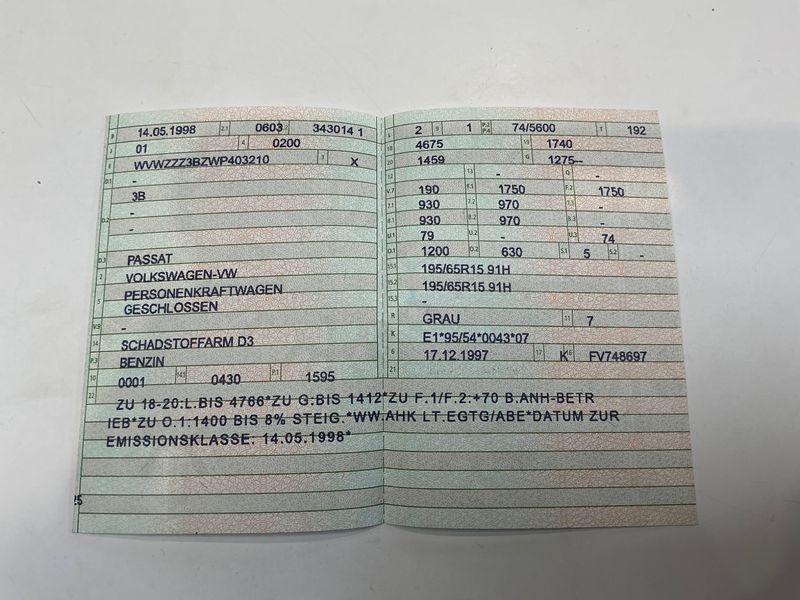 B 14.05.1998 2.1 0603 2.2 343014 1
J 01 4 0200
E WVWZZZ3BZWP403210 3 X
D.1 -
3B
D.2 -
-
D.3 PASSAT
2 VOLKSWAGEN-VW
5 PERSONENKRAFTWAGEN
GESCHLOSSEN
V.9 -
14 SCHADSTOFFARM D3
P.3 BENZIN
10 0001 14.1 0430 P.1 1595
L 2 9 1 P.2 P.4 74/5600 T 192
18 4675 19 1740
20 1459 G 1275--
12 - 13 - Q -
V.7 190 F.1 1750 F.2 1750
7.1 930 7.2 970 7.3 -
8.1 930 8.2 970 8.3 -
U.1 79 U.2 - U.3 74
O.1 1200 O.2 630 S.1 5 S.2 -
15.1 195/65R15 91H
15.2 195/65R15 91H
15.3 -
R GRAU 11 7
K E1*95/54*0043*07
6 17.12.1997 17 K 16 FV748697
21
22 ZU 18-20:L.BIS 4766*ZU G:BIS 1412*ZU F.1/F.2:+70 B.ANH-BETR
IEB*ZU O.1:1400 BIS 8% STEIG.*WW.AHK LT.EGTG/ABE*DATUM ZUR
EMISSIONSKLASSE: 14.05.1998*